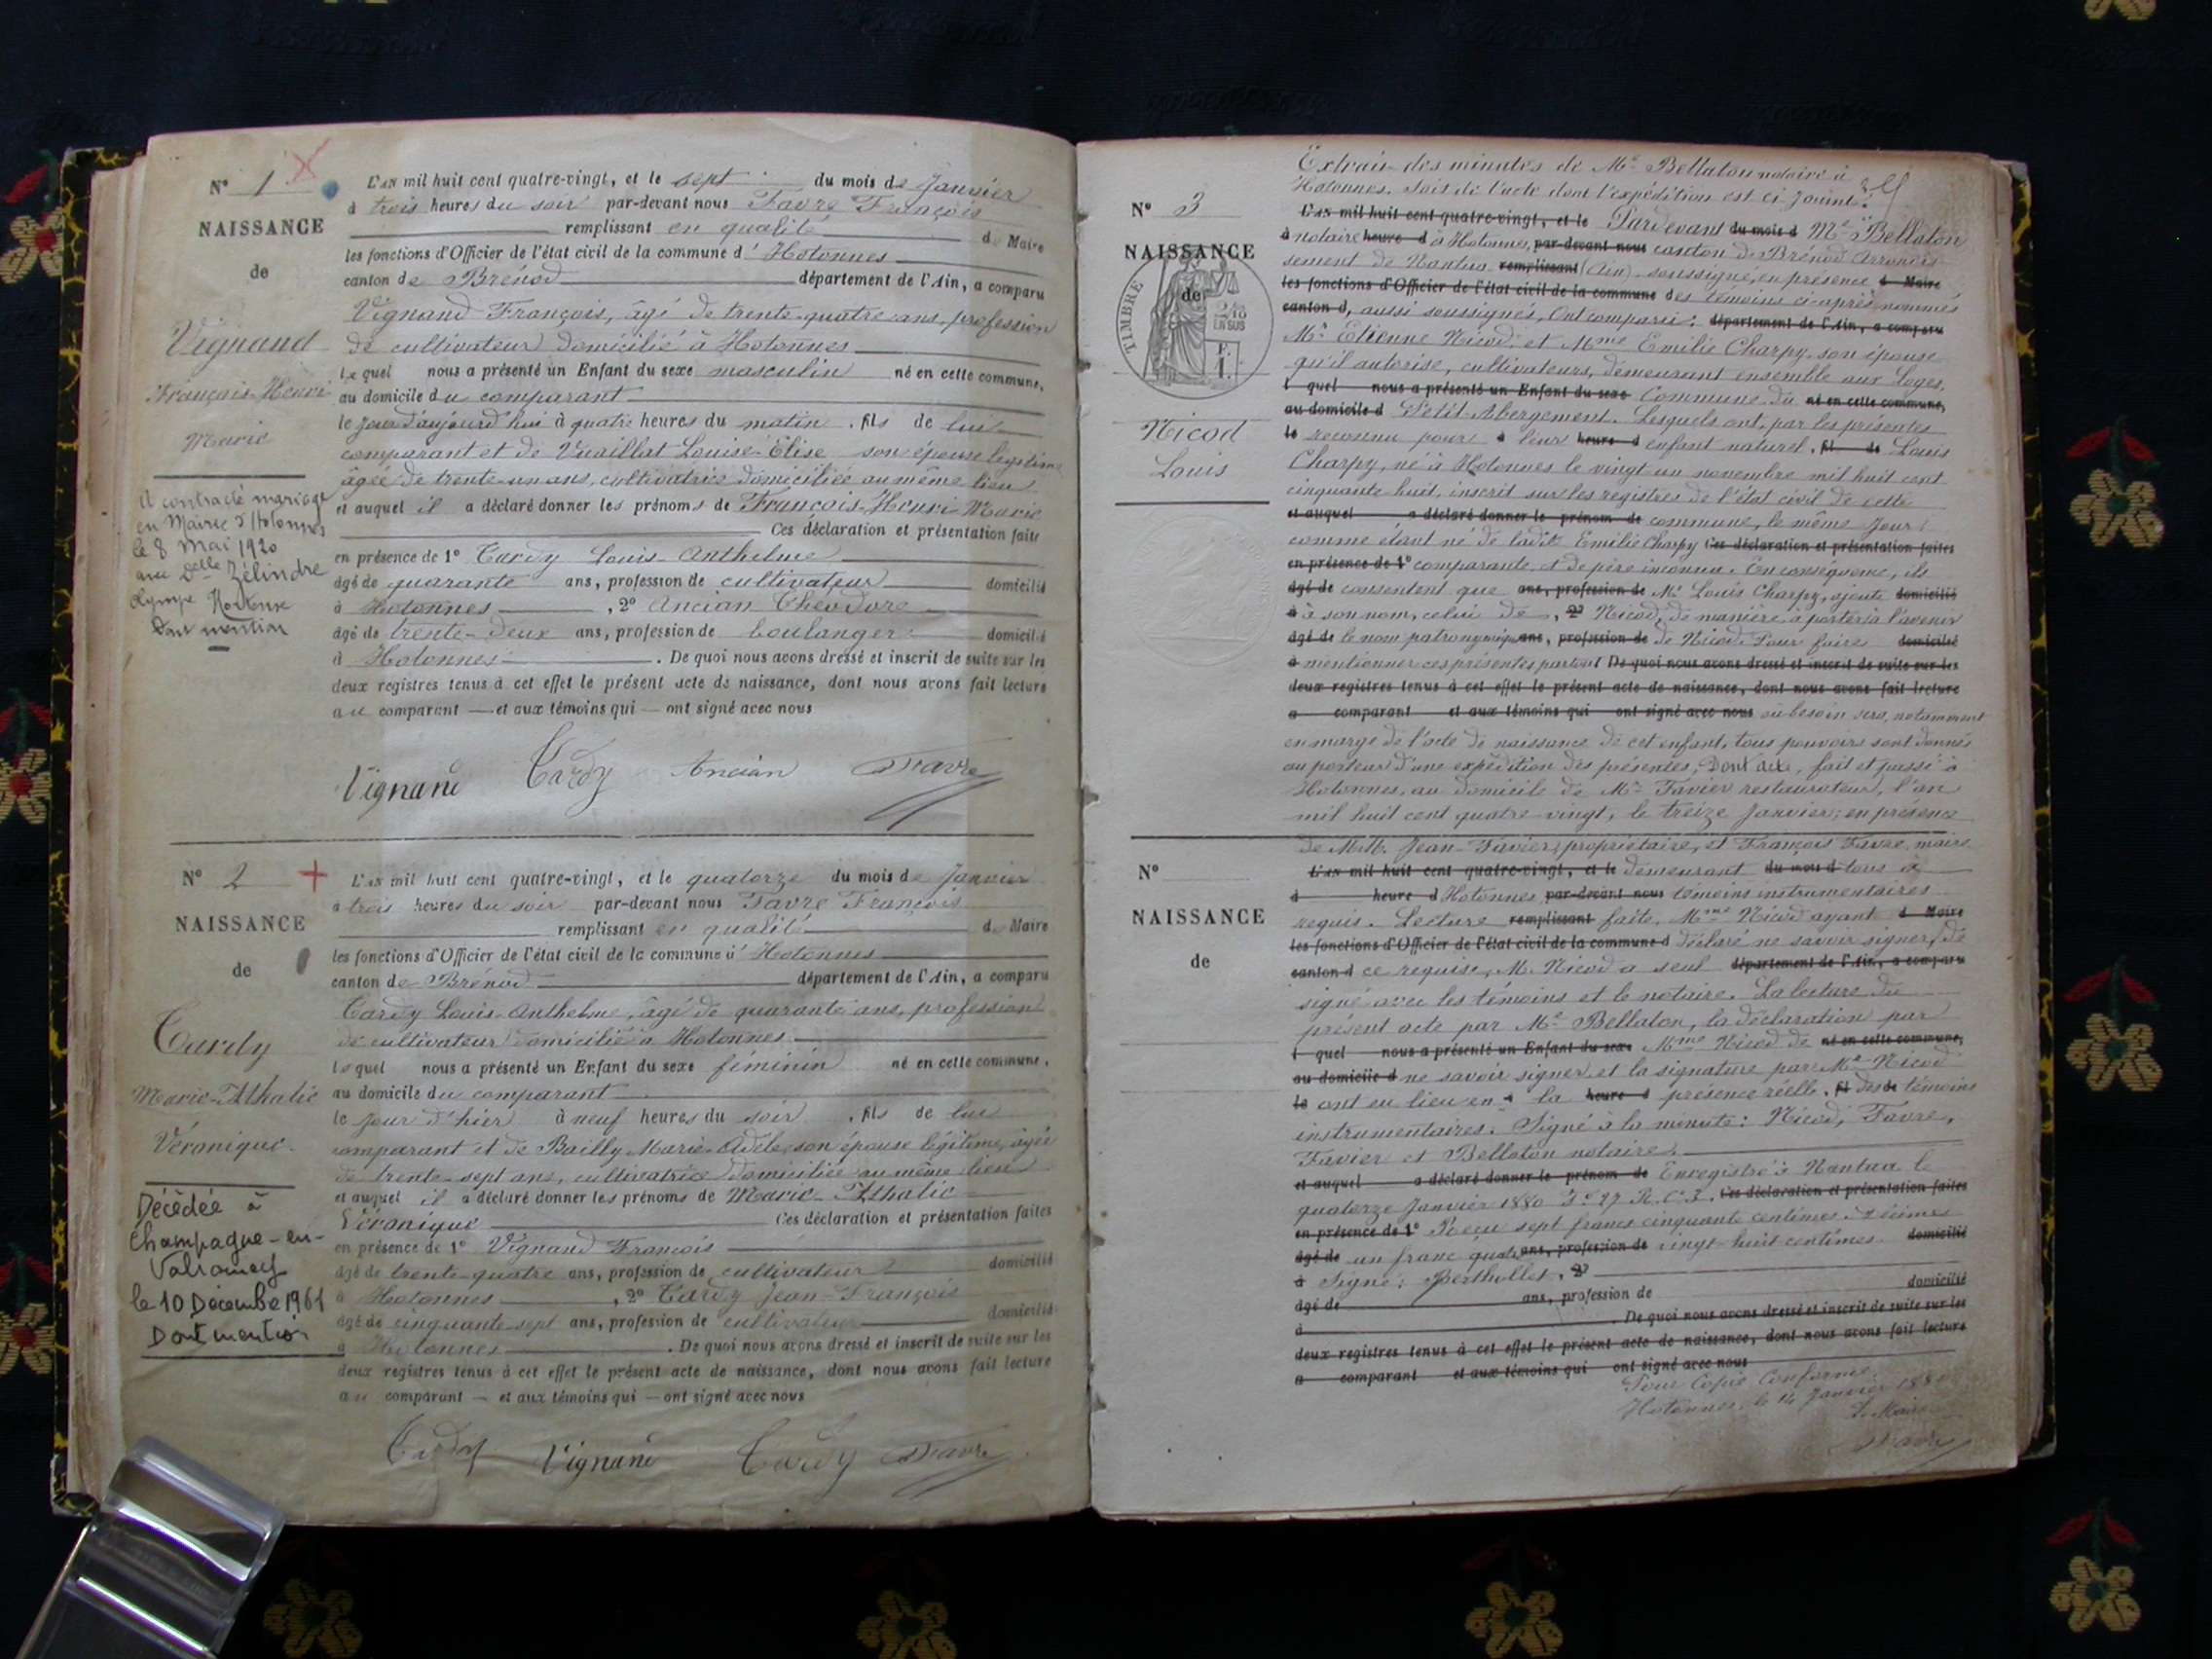 N° 1
NAISSANCE
de
Vignand
François-Henri
Marie
A contracté mariage
en Mairie d'Hotonnes
le 8 Mai 1920
avec Delle Zélindre
Olympe Hortense
Dont mention
L'an mil huit cent quatre-vingt, et le sept du mois de Janvier
à trois heures du soir par-devant nous Favre François
remplissant en qualité de Maire
les fonctions d'Officier de l'état civil de la commune d'Hotonnes
canton de Brénod département de l'Ain, a comparu
Vignand François, âgé de trente-quatre ans, profession
de cultivateur domicilié à Hotonnes
lequel nous a présenté un Enfant du sexe masculin né en cette commune,
au domicile du comparant
le jour d'aujourd'hui à quatre heures du matin, fils de lui
comparant et de Vuaillat Louise-Elise son épouse légitime
âgée de trente-un ans, cultivatrice domiciliée au même lieu
et auquel il a déclaré donner les prénoms de François-Henri-Marie
Ces déclaration et présentation faite
en présence de 1° Tardy Louis-Anthelme
âgé de quarante ans, profession de cultivateur domicilié
à Hotonnes, 2° Ancian Théodore
âgé de trente-deux ans, profession de boulanger domicilié
à Hotonnes. De quoi nous avons dressé et inscrit de suite sur les
deux registres tenus à cet effet le présent acte de naissance, dont nous avons fait lecture
au comparant et aux témoins qui ont signé avec nous
Vignand Tardy Ancian Favre
N° 2
NAISSANCE
de
Tardy
Marie-Athalie
Véronique
Décédée à
Champagne-en-
Valromey
le 10 Décembre 1961
Dont mention
L'an mil huit cent quatre-vingt, et le quatorze du mois de Janvier
à trois heures du soir par-devant nous Favre François
remplissant en qualité de Maire
les fonctions d'Officier de l'état civil de la commune d'Hotonnes
canton de Brénod département de l'Ain, a comparu
Tardy Louis-Anthelme, âgé de quarante ans, profession
de cultivateur domicilié à Hotonnes
lequel nous a présenté un Enfant du sexe féminin né en cette commune,
au domicile du comparant
le jour d'hier à neuf heures du soir, fils de lui
comparant et de Bailly Marie-Adèle, son épouse légitime, âgée
de trente-sept ans, cultivatrice domiciliée au même lieu
et auquel il a déclaré donner les prénoms de Marie-Athalie
Véronique Ces déclaration et présentation faites
en présence de 1° Vignand François
âgé de trente-quatre ans, profession de cultivateur domicilié
à Hotonnes, 2° Tardy Jean-François
âgé de cinquante-sept ans, profession de cultivateur domicilié
à Hotonnes. De quoi nous avons dressé et inscrit de suite sur les
deux registres tenus à cet effet le présent acte de naissance, dont nous avons fait lecture
au comparant et aux témoins qui ont signé avec nous
Tardy Vignand Tardy Favre
N° 3
NAISSANCE
de
TIMBRE
2/10
EN SUS
F.
1.
Nicod
Louis
Extrait des minutes de Me Bellaton notaire à
Hotonnes. Soit de l'acte dont l'expédition est ci jointe.
L'an mil huit cent quatre-vingt, et le Pardevant du mois d Me Bellaton
à notaire heure d à Hotonnes, par-devant nous canton de Brénod arrondis-
sement de Nantua remplissant (Ain) soussigné, en présence d Maire
les fonctions d'Officier de l'état civil de la commune des témoins ci-après nommés
canton d, aussi soussignés, Ont comparu: département de l'Ain, a comparu
Mr Etienne Nicod et Mme Emilie Charpy, son épouse
qu'il autorise, cultivateurs, demeurant ensemble aux Loges,
l quel nous a présenté un Enfant du sexe Commune du né en cette commune,
au domicile d Petit-Abergement. Lesquels ont, par les présentes
le reconnu pour à leur heure d enfant naturel, fil de Louis
Charpy, né à Hotonnes le vingt un novembre mil huit cent
cinquante huit, inscrit sur les registres de l'état civil de cette
et auquel a déclaré donner le prénom de commune, le même jour
comme étant né de ladite Emilie Charpy Ces déclaration et présentation faites
en présence de 1° comparante, et de père inconnu. En conséquence, ils
âgé de consentent que ans, profession de Mr Louis Charpy, ajoute domicilié
à à son nom, celui de, 2° Nicod, de manière à porter à l'avenir
âgé de le nom patronymique ans, profession de de Nicod. Pour faire domicilié
à mentionner ces présentes partout De quoi nous avons dressé et inscrit de suite sur les
deux registres tenus à cet effet le présent acte de naissance, dont nous avons fait lecture
a comparant et aux témoins qui ont signé avec nous où besoin sera, notamment
en marge de l'acte de naissance de cet enfant, tous pouvoirs sont donnés
au porteur d'une expédition des présentes, Dont acte, fait et passé à
Hotonnes, au domicile de Mr Favier restaurateur, l'an
mil huit cent quatre-vingt, le treize Janvier; en présence
N°
NAISSANCE
de
de MM. Jean-Favier, propriétaire, et François Favre, maire
L'an mil huit cent quatre-vingt, et le demeurant du mois d tous à
à heure d Hotonnes par-devant nous témoins instrumentaires
requis. Lecture remplissant faite, Mme Nicod ayant d Maire
les fonctions d'Officier de l'état civil de la commune d déclaré ne savoir signer, de
canton d ce requise, M. Nicod a seul département de l'Ain, a comparu
signé avec les témoins et le notaire. La lecture du
présent acte par Me Bellaton, la déclaration par
l quel nous a présenté un Enfant du sexe Mme Nicod de né en cette commune,
au domicile d ne savoir signer et la signature par Mr Nicod
le ont eu lieu en à la heure d présence réelle, fil des de témoins
instrumentaires. Signé à la minute: Nicod, Favre,
Favier et Bellaton notaire.
et auquel a déclaré donner le prénom de Enregistré à Nantua le
quatorze Janvier 1880 Ces déclaration et présentation faites
en présence de 1° Reçu sept francs cinquante centimes. décimes
âgé de un franc ans, profession de vingt-huit centimes domicilié
à Signé: Berthollet, 2°
âgé de ans, profession de domicilié
à. De quoi nous avons dressé et inscrit de suite sur les
deux registres tenus à cet effet le présent acte de naissance, dont nous avons fait lecture
a comparant et aux témoins qui ont signé avec nous
Pour Copie Conforme
Hotonnes, le 14 Janvier 1880
Le Maire
Favre